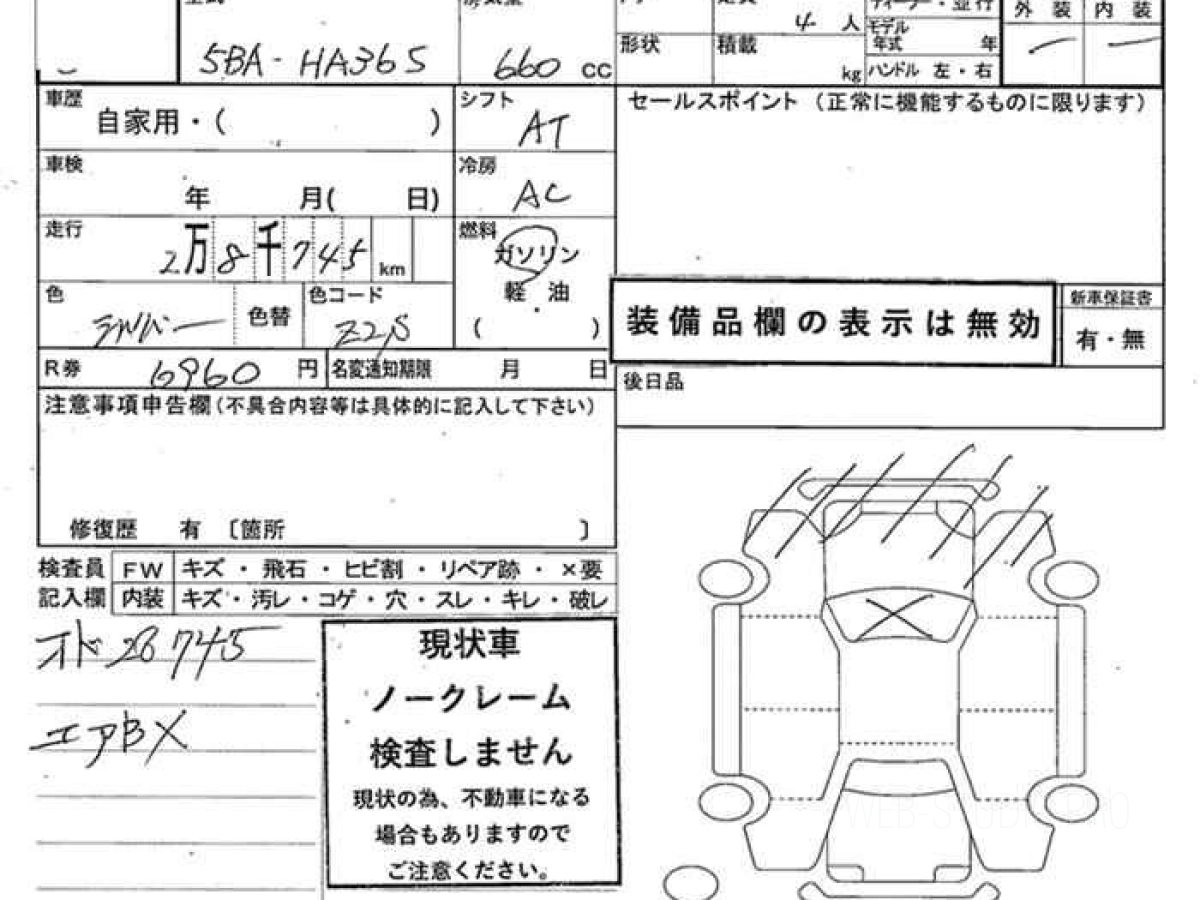 5BA-HA36S
660 cc
4 人
ディーラー・並行
モデル年式 年
外装 内装
形状
積載 kg
ハンドル 左・右
車歴
自家用・( )
シフト
AT
セールスポイント (正常に機能するものに限ります)
車検
年 月( 日)
冷房
AC
走行
2万8千745 km
燃料
ガソリン
軽 油
( )
色
シルバー
色替
色コード
Z2S
装備品欄の表示は無効
新車保証書
有・無
R券 6960 円
名変通知期限 月 日
後日品
注意事項申告欄(不具合内容等は具体的に記入して下さい)
修復歴 有 〔箇所 〕
検査員
記入欄
FW キズ・飛石・ヒビ割・リペア跡・×要
内装 キズ・汚レ・コゲ・穴・スレ・キレ・破レ
オド 28745
エアB X
現状車
ノークレーム
検査しません
現状の為、不動車になる
場合もありますので
ご注意ください。